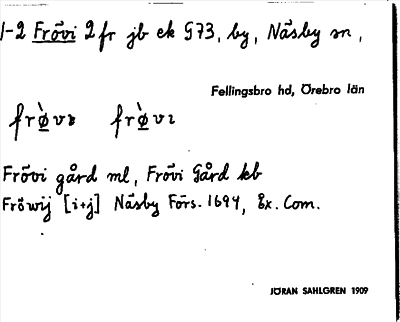 1-2 Frövi 2 fr jb ek G73, by, Näsby sn,
Fellingsbro hd, Örebro län
Frövi gård ml, Frövi Gård kb
Fröwij [i+j] Näsby Förs. 1694, Ex. Com.
JÖRAN SAHLGREN 1909